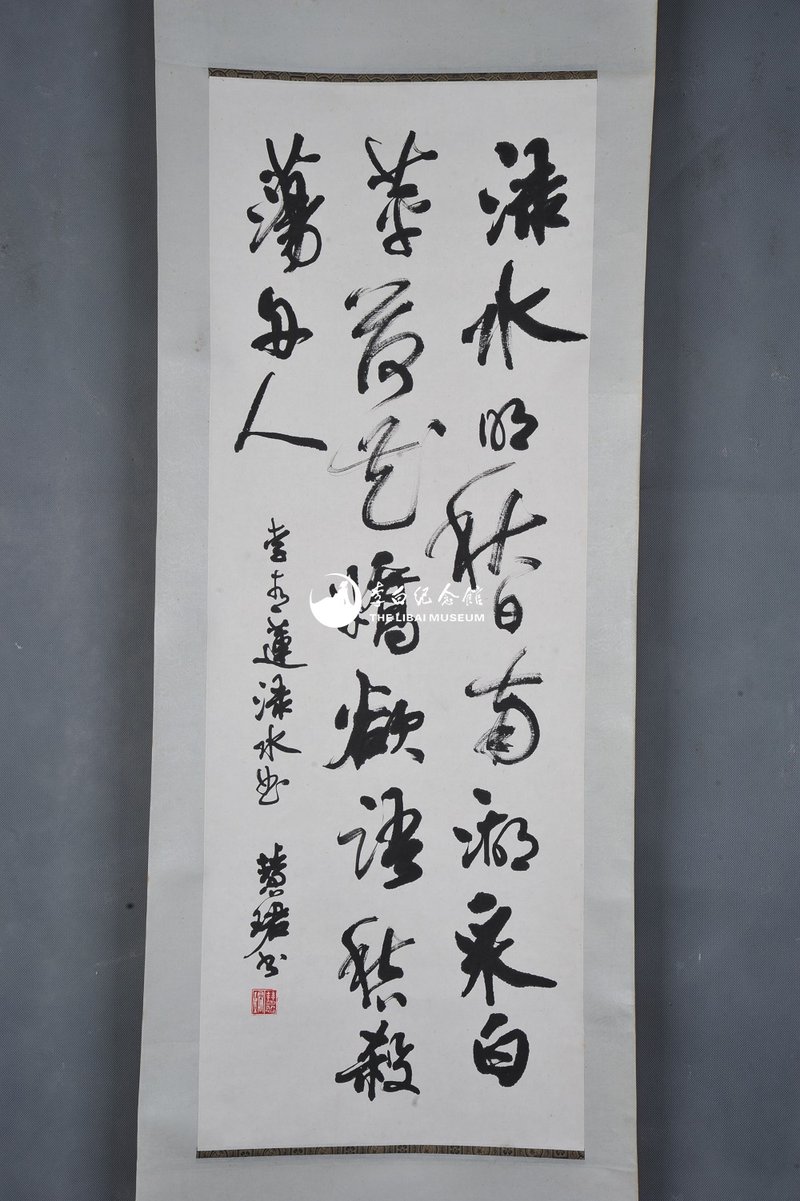 渌水明秋日南湖采白
苹荷花嬌欲語愁殺
蕩舟人
李青蓮渌水曲 慧珺书
李白纪念館
THE LIBAI MUSEUM